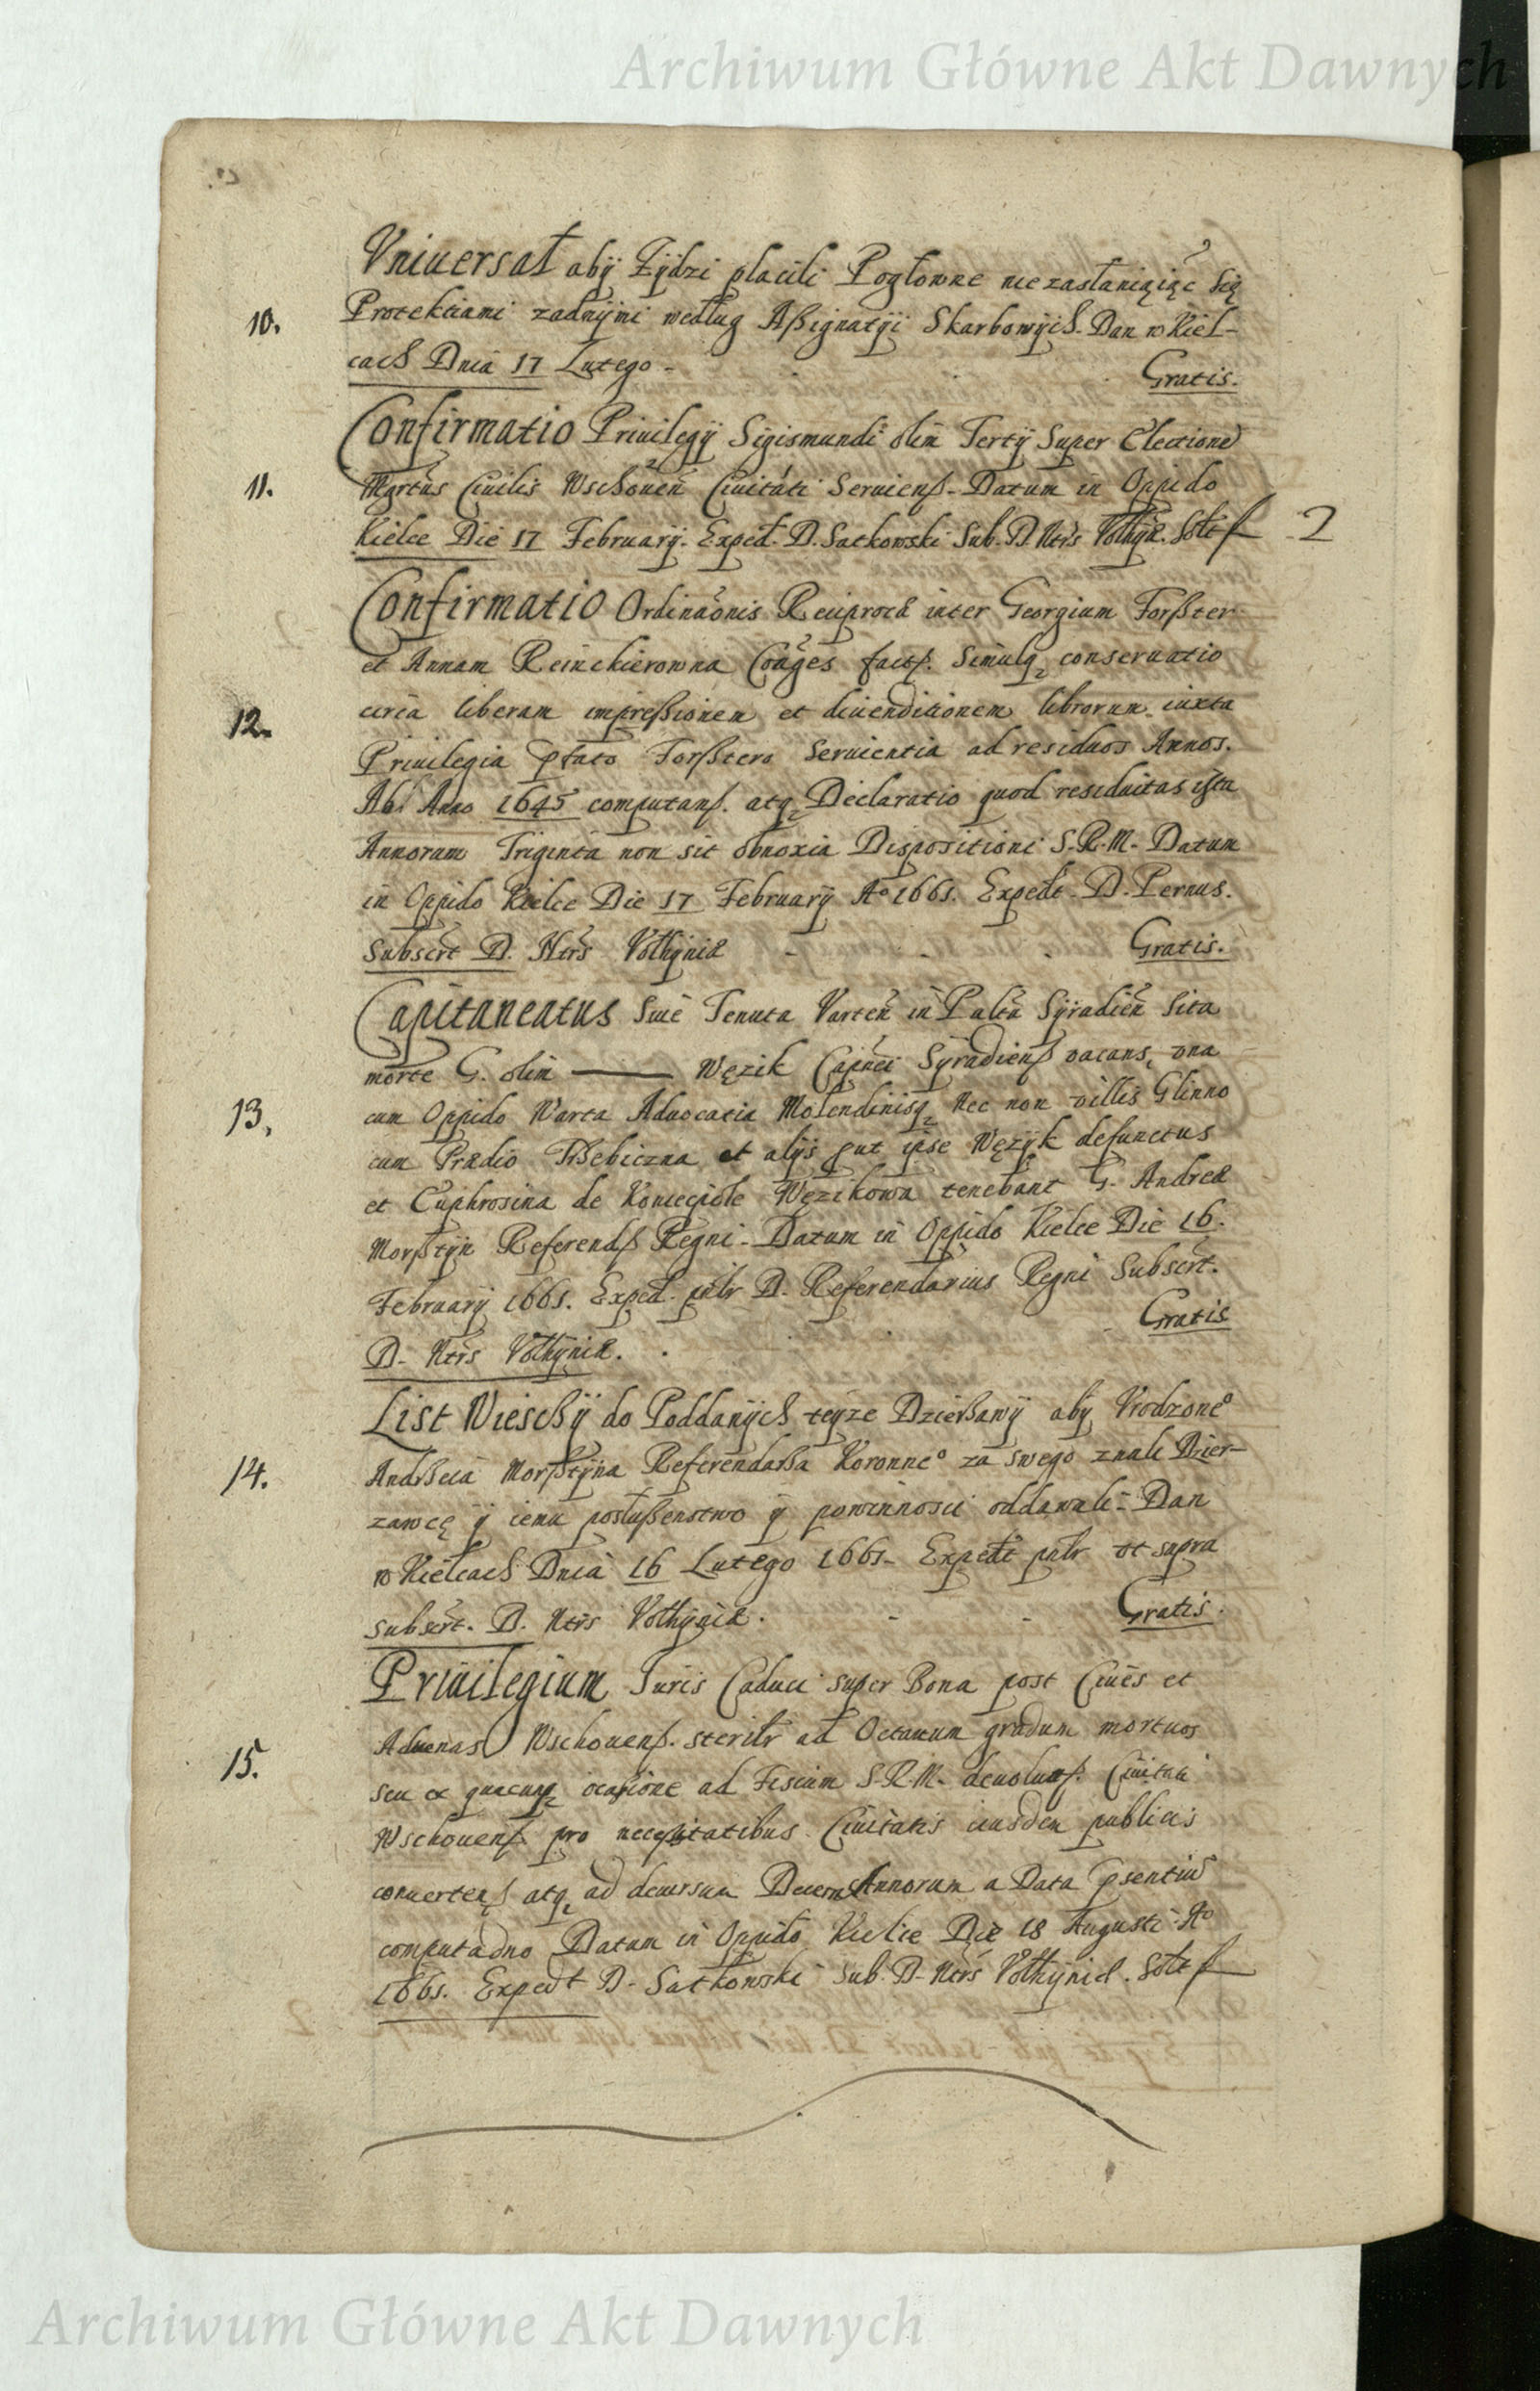 Archiwum Główne Akt Dawnych
Vniuersał abÿ Żÿdzi płacili Pogłowne niezasłaniąiąc Się
10. Protektiami żadnÿmi według Aßignatÿi Skarbowÿch. Dan w Kiel-
cach Dnia 17 Lutego - Gratis.
Confirmatio Priuilegÿ Sigismundi olim Tertÿ Super Electione
11. Mgrtus Ciuilis Wschouen Ciuitati Seruienß - Datum in Oppido
Kielce Die 17 Februarÿ. Exped. D. Satkowski Sub. D. Ntrs Volhÿn. Solt f 2
Confirmatio Ordinaonis Reciproca inter Georgium Forßter
et Annam Reinckierowna Coages fact. Simulq conseruatio
12. circa liberam impreßionem et diuenditionem librorum iuxta
Priuilegia pfato Forßtero Seruientia ad residuos Annos.
Ab Anno 1645 computanß. atq Declaratio quod residuitas ista
Annorum Triginta non sit obnoxia Dispositioni S.R.M. Datum
in Oppido Kielce Die 17 Februarÿ Ao 1661. Expedt. D. Pernus.
Subscrt D. Ntrs Volhÿniæ - - . Gratis.
Capitaneatus Siue Tenuta Varten in Paltu Sÿradien Sita
morte G. olim —— Węzik Capnei Sÿradienß vacans, vna
13. cum Oppido Warta Aduocatia Molendinisq Nec non villis Glinno
cum Prædio Trßebiczna et alÿs put ipse Węzÿk defunctus
et Euphrosina de Koniecpole Węzikowa tenebant G. Andreæ
Morßtÿn Referendß Regni - Datum in Oppido Kielce Die 16.
Februarÿ 1661. Exped. pntr D. Referendarius Regni Subscrt.
D. Ntrs Volhÿniæ. . Gratis
List Wieschÿ do Poddanÿch teÿze Dzierßawÿ abÿ Vrodzoneo
14. Andrßeia Morßtÿna Referendarßa Koronneo za swego znali Dzier-
zawcę ÿ iemu posłußenstwo ÿ powinnosci oddawali - Dan
w Kielcach Dnia 16 Lutego 1661 - Expedt pntr vt supra
subscrt. D. Ntrs Volhÿniæ. - - Gratis.
Priuilegium Iuris Caduci super Bona post Ciues et
Aduenas Wschouenß. sterilr ad Octauum gradum mortuos
15. seu ex quacunq ocasione ad Fiscum S.R.M. deuolutß. Ciuitati
Wschouenß pro neceßitatibus Ciuitatis eiusdem publicis
conuertenß atq ad decursum Decem Annorum a Data psentiu
computadno Datum in Oppido Kielce Die 18 Augusti Ao
1661. Expedt D. Satkowski Sub. D. Ntrs Volhÿniæ. Solt f
Archiwum Główne Akt Dawnych